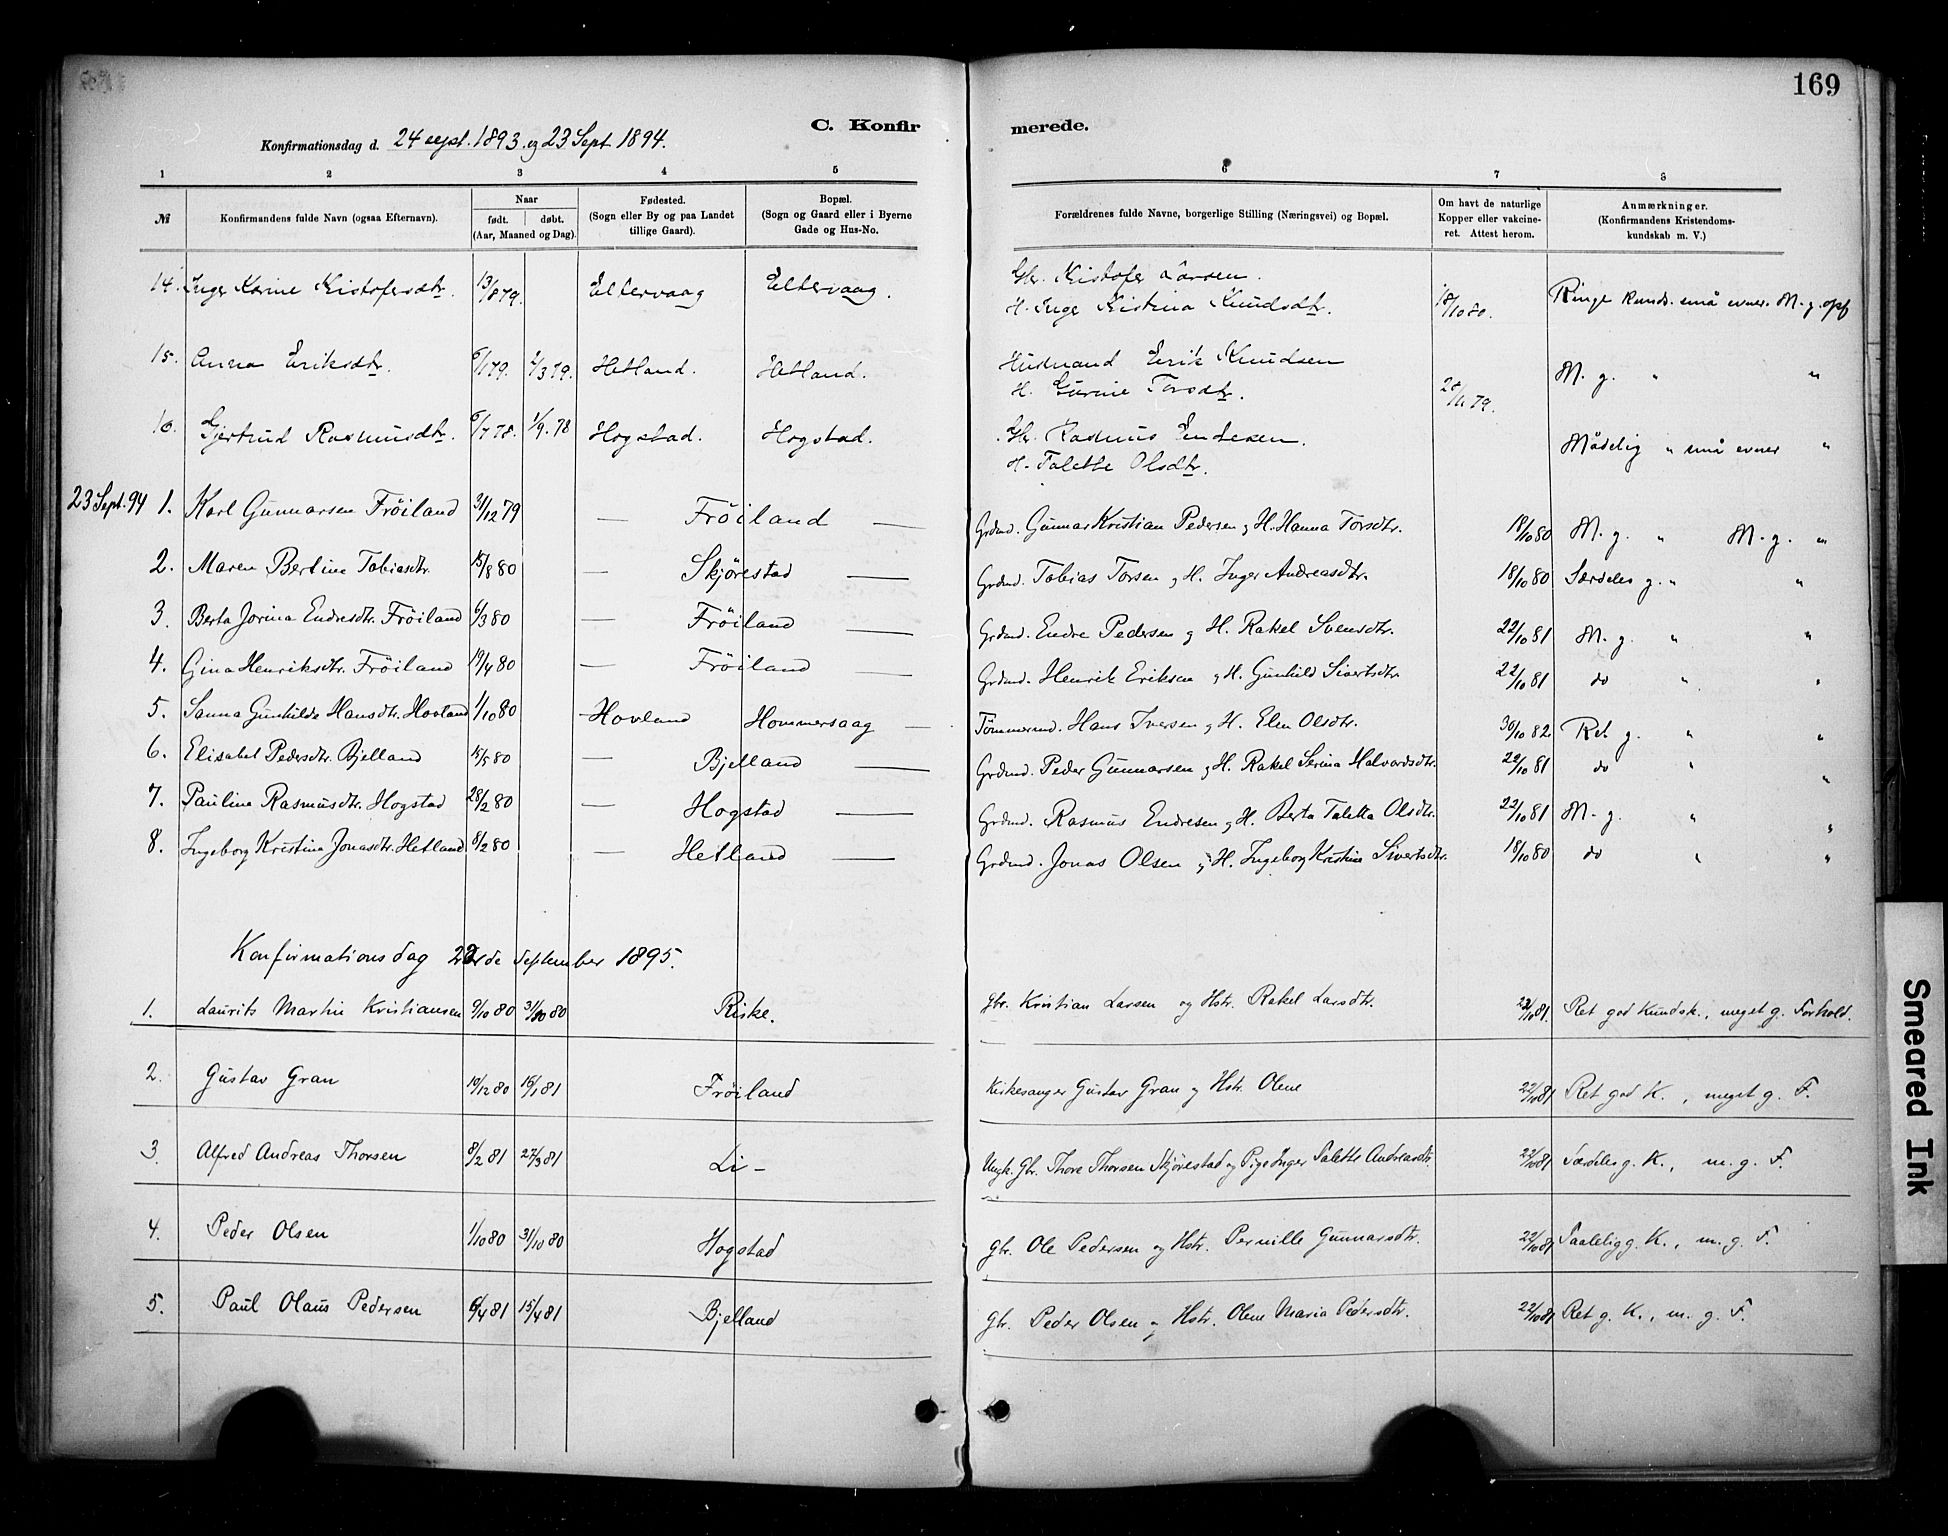 169
C. Konfirmerede.
Konfirmationsdag d. 24 sept. 1893. og 23 Sept 1894.
1 2 3 4 5 6 7 8
№ Konfirmandens fulde Navn (ogsaa Efternavn). Naar født. døbt. (Aar, Maaned og Dag). Fødested. (Sogn eller By og paa Landet tillige Gaard). Bopæl. (Sogn og Gaard eller i Byerne Gade og Hus-No. Forældrenes fulde Navne, borgerlige Stilling (Næringsvei) og Bopæl. Om havt de naturlige Kopper eller vakcineret. Attest herom. Anmærkninger. (Konfirmandens Kristendomskundskab m. V.)
14. Inger Karine Kristofersdtr. 13/8 79. Eltervaag Eltervaag. Gbr. Kristofer Larsen. H. Inge Kristina Knudsdtr. 18/10 80. Ringe kunds. små evner. M. g. opf
15. Anna Eriksdtr. 6/1 79. 2/3 79. Hetland. Hetland. Husmand Erik Knudsen H. Gurine Torsdtr. 28/11 79. M. g. " "
16. Gjertrud Rasmusdtr. 6/7 78. 1/9. 78 Hogstad. Hogstad. Gbr. Rasmus Endresen. H. Talette Olsdtr. Mådelig " små evner "
23 Sept. 94 1. Karl Gunnarsen Fröiland 31/12 79 — Fröiland — Grdmd. Gunnar Kristian Pedersen og H. Hanna Torsdtr. 18/10 80 M. g. " M. g. "
2. Maren Bertine Tobiasdtr. 15/8 80 — Skjörestad — Grdmd. Tobias Torsen og H. Inger Andreasdtr. 18/10 80 Særdeles g. " "
3. Berta Jorina Endresdtr. Fröiland 6/3 80 — Fröiland — Grdmd. Endre Pedersen og H. Rakel Svensdtr. 22/10 81 M. g. " "
4. Gina Henriksdtr. Fröiland 19/4 80 — Fröiland Grdmd. Henrik Eriksen og H. Gunhild Sivertsdtr. 22/10 81 do " "
5. Sanna Gunhilde Hansdtr. Hovland 1/10 80 — Hovland Hommersaag — Tömmermd. Hans Iversen og H. Elen Olsdtr. 30/10 82 Ret g. " "
6. Elisabet Pedersdtr. Bjelland 15/5 80 — Bjelland — Grdmd. Peder Gunnarsen og H. Rakel Serina Halvorsdtr. 22/10 81 do " "
7. Pauline Rasmusdtr. Hogstad 28/2 80 — Hogstad — Grdmd. Rasmus Endresen og H. Berta Taletta Olsdtr. 22/10 81 M. g. " "
8. Ingeborg Kristina Jonasdtr. Hetland 8/2 80 — Hetland — Grdmd. Jonas Olsen og H. Ingeborg Kristine Sivertsdtr. 18/10 80 do " "
Konfirmationsdag 22de September 1895.
1. Laurits Martin Kristiansen 9/10 80 31/10 80 Riske. Gbr. Kristian Larsen og Hstr. Rakel Larsdtr. 22/10 81. Ret god Kundsk., meget g. Forhold.
2. Gustav Gran 10/12 80 16/1 81 Fröiland Kirkesanger Gustav Gran og Hstr. Olene 22/10 81 Ret god K., meget g. F.
3. Alfred Andreas Thorsen 8/2 81 27/3 81 Li — Ungk. Gbr. Thore Thorsen Skjörestad og Pige Inger Talette Andreasdtr 22/10 81 Særdeles g. K., m. g. F.
4. Peder Olsen 1/10 80 31/10 80 Hogstad Gbr. Ole Pedersen og Hstr. Pernille Gunnarsdtr. 22/10 81 Taalelig g. K., m. g. F.
5. Paul Olaus Pedersen 6/4 81 15/4 81 Bjelland Gbr. Peder Olsen og Hstr. Olene Maria Pedersdtr. 22/10 81 Ret g. K., m. g. F.
Smeared Ink